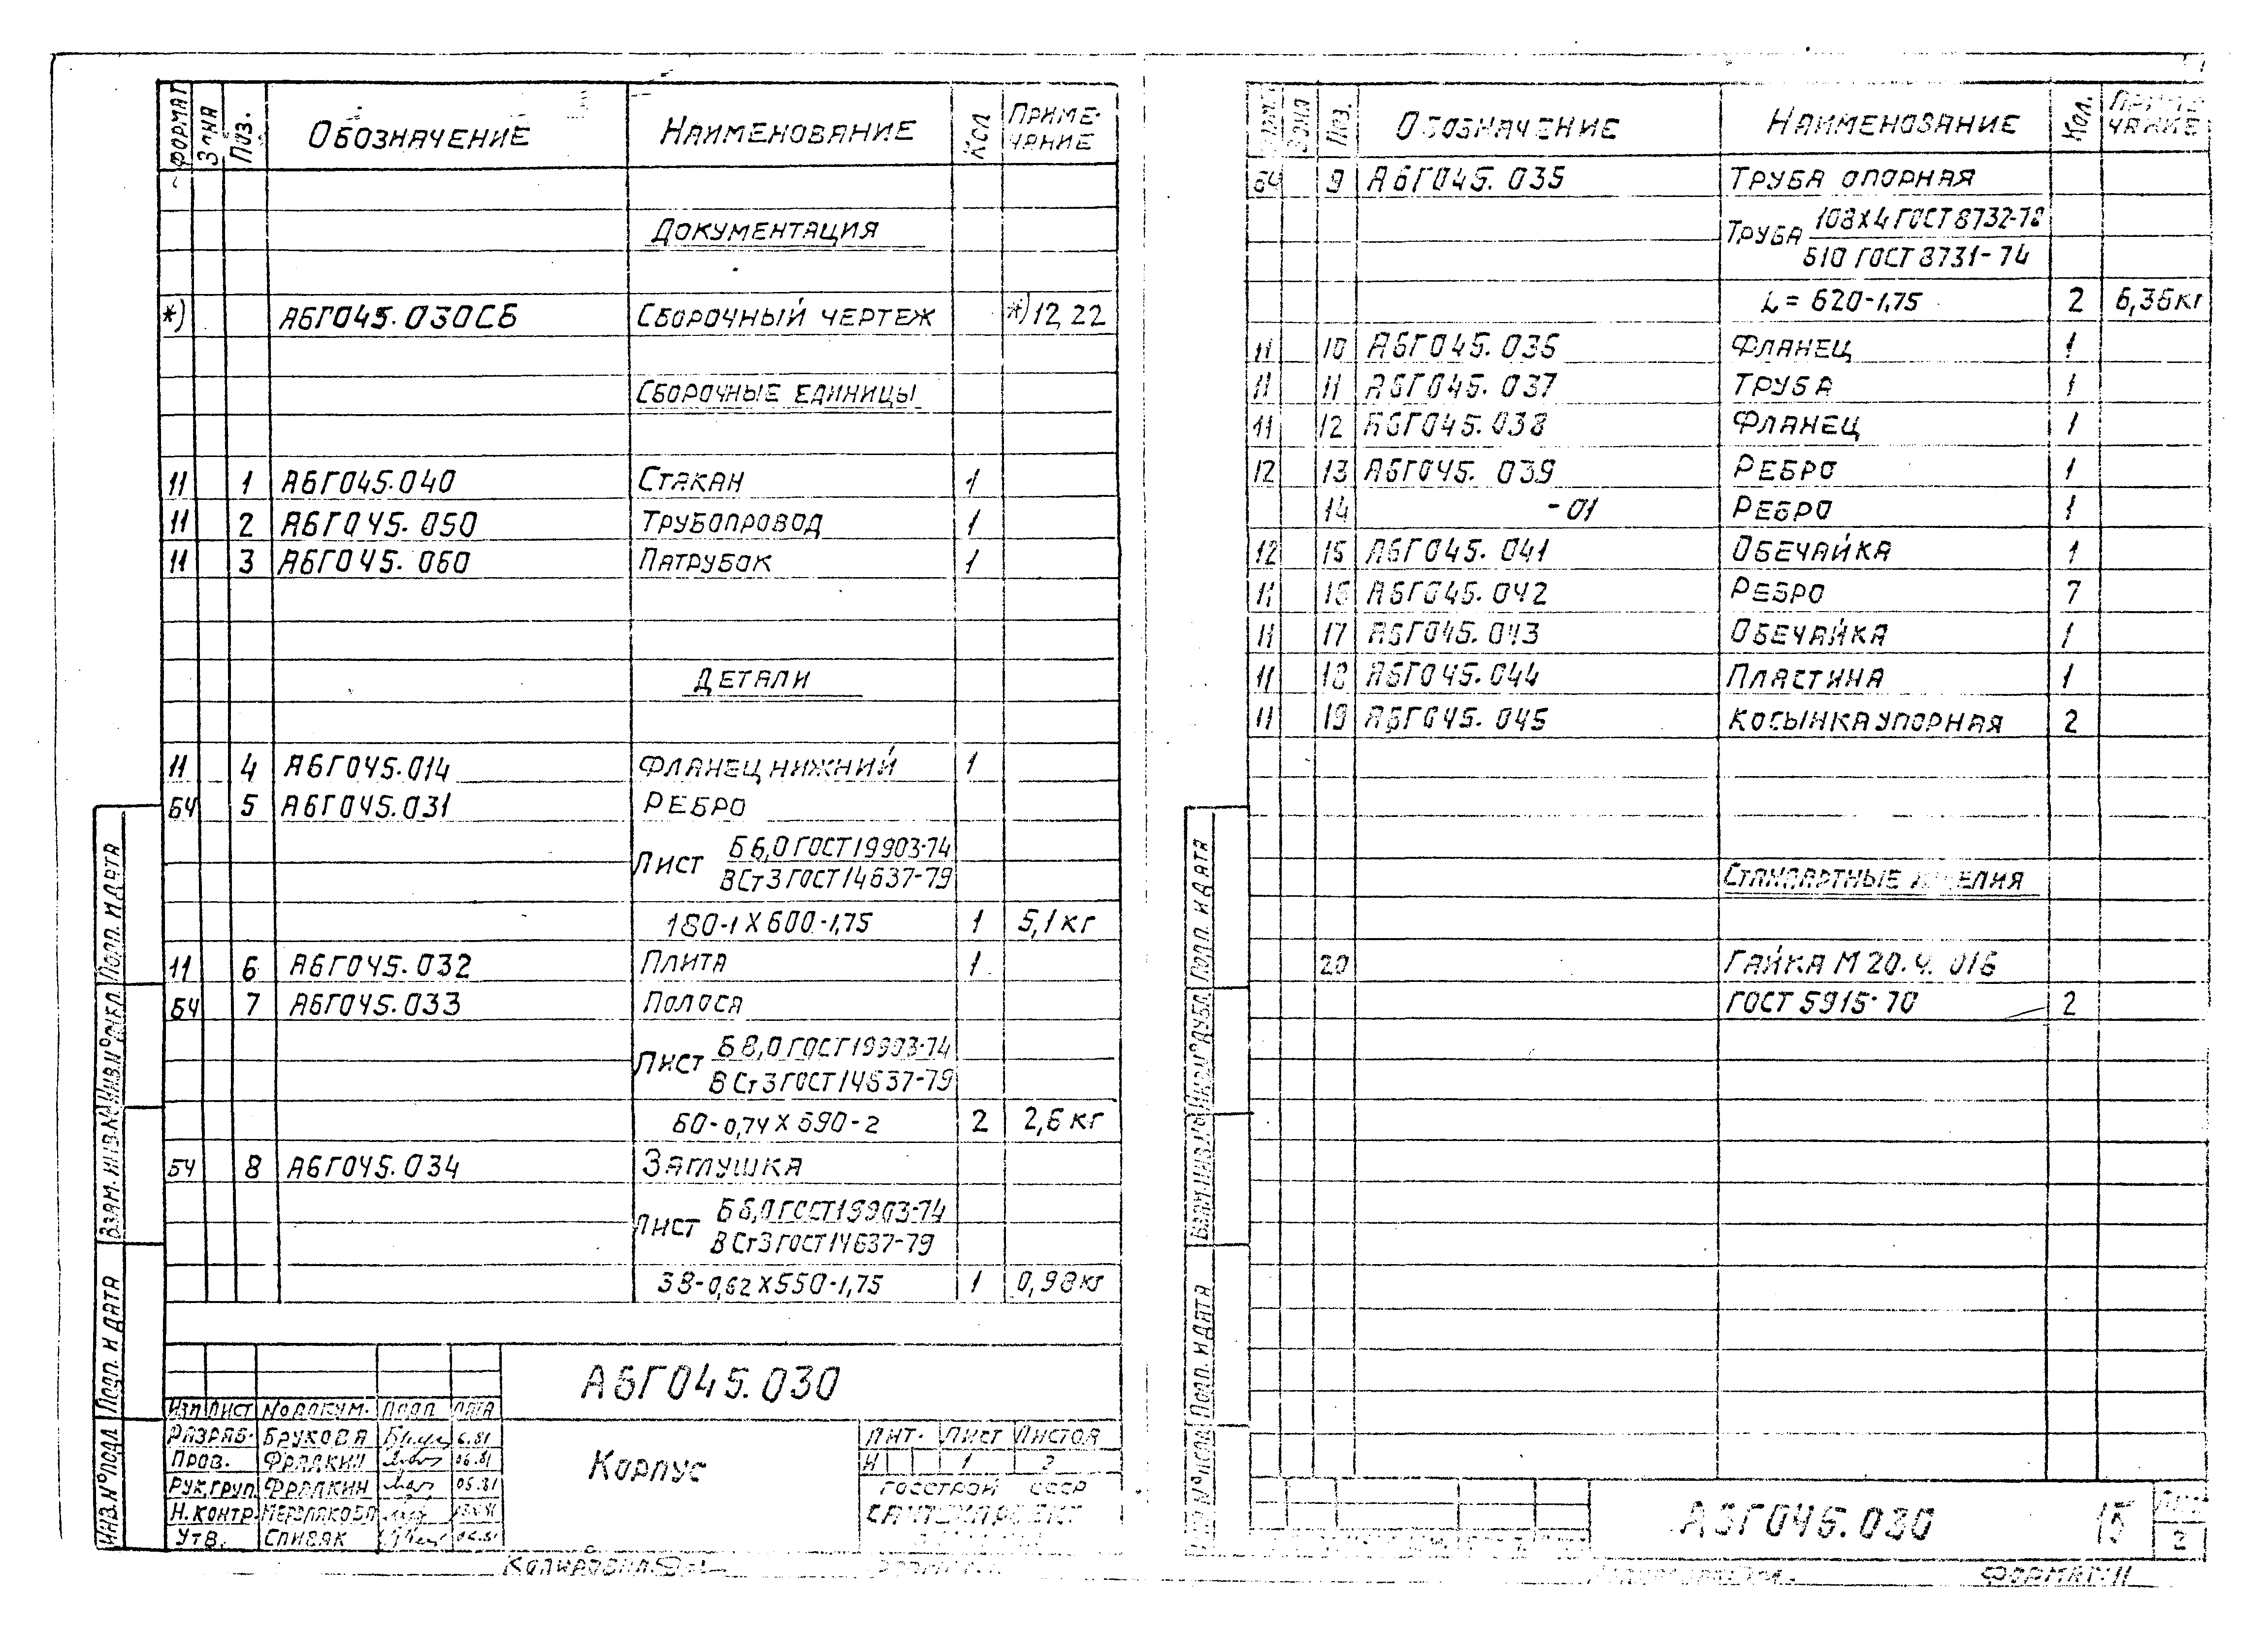 ФОРМАТ ЗОНА ПОЗ. ОБОЗНАЧЕНИЕ НАИМЕНОВАНИЕ КОЛ ПРИМЕ-ЧАНИЕ
ДОКУМЕНТАЦИЯ
*) А6Г045.030СБ СБОРОЧНЫЙ ЧЕРТЕЖ *)12,22
СБОРОЧНЫЕ ЕДИНИЦЫ
11 1 А6Г045.040 СТАКАН 1
11 2 А6Г045.050 ТРУБОПРОВОД 1
11 3 А6Г045.060 ПАТРУБОК 1
ДЕТАЛИ
11 4 А6Г045.014 ФЛАНЕЦ НИЖНИЙ 1
БЧ 5 А6Г045.031 РЕБРО
Б 6,0 ГОСТ 19903-74
ЛИСТ
ВСт3 ГОСТ 14637-79
180-1 Х 600-1,75 1 5,1 кг
11 6 А6Г045.032 ПЛИТА 1
БЧ 7 А6Г045.033 ПОЛОСА
Б 8,0 ГОСТ 19903-74
ЛИСТ
ВСт3 ГОСТ 14637-79
60-0,74 Х 690-2 2 2,6 кг
БЧ 8 А6Г045.034 ЗАГЛУШКА
Б 6,0 ГОСТ 19903-74
ЛИСТ
ВСт3 ГОСТ 14637-79
38-0,62 Х 550-1,75 1 0,98 кг
ПОДП. И ДАТА
ИНВ.N°ДУБЛ.
ВЗАМ. ИНВ.N°
ПОДП. И ДАТА
ИНВ.N°ПОДЛ
А6Г045.030
ИЗМ ЛИСТ N°ДОКУМ. ПОДП ДАТА
РАЗРАБ. БРУКОВА 6.81
ПРОВ. ФРАДКИН 06.81
РУК.ГРУП. ФРАДКИН 05.81
Н.КОНТР.
УТВ. СПИВАК 06.81
КОРПУС
ЛИТ. ЛИСТ ЛИСТОВ
И 1 2
ГОССТРОЙ СССР
САНТЕХПРОЕКТ
КОПИРОВАЛ
ЗОНА ПОЗ. ОБОЗНАЧЕНИЕ НАИМЕНОВАНИЕ КОЛ. ПРИМЕ-ЧАНИЕ
БЧ 9 А6Г045.035 ТРУБА ОПОРНАЯ
108Х4 ГОСТ 8732-78
ТРУБА
Б10 ГОСТ 8731-74
L = 620-1,75 2 6,36 кг
11 10 А6Г045.036 ФЛАНЕЦ 1
11 11 А6Г045.037 ТРУБА 1
11 12 А6Г045.038 ФЛАНЕЦ 1
12 13 А6Г045.039 РЕБРО 1
14 -01 РЕБРО 1
12 15 А6Г045.041 ОБЕЧАЙКА 1
11 16 А6Г045.042 РЕБРО 7
11 17 А6Г045.043 ОБЕЧАЙКА 1
11 18 А6Г045.044 ПЛАСТИНА 1
11 19 А6Г045.045 КОСЫНКА УПОРНАЯ 2
СТАНДАРТНЫЕ ИЗДЕЛИЯ
20 ГАЙКА М20.4.016
ГОСТ 5915-70 2
ПОДП. И ДАТА
ИНВ.N°ДУБЛ
ВЗАМ.ИНВ.N°
ПОДП. И ДАТА
А6Г045.030 15 ЛИСТ
2
ФОРМАТ 11